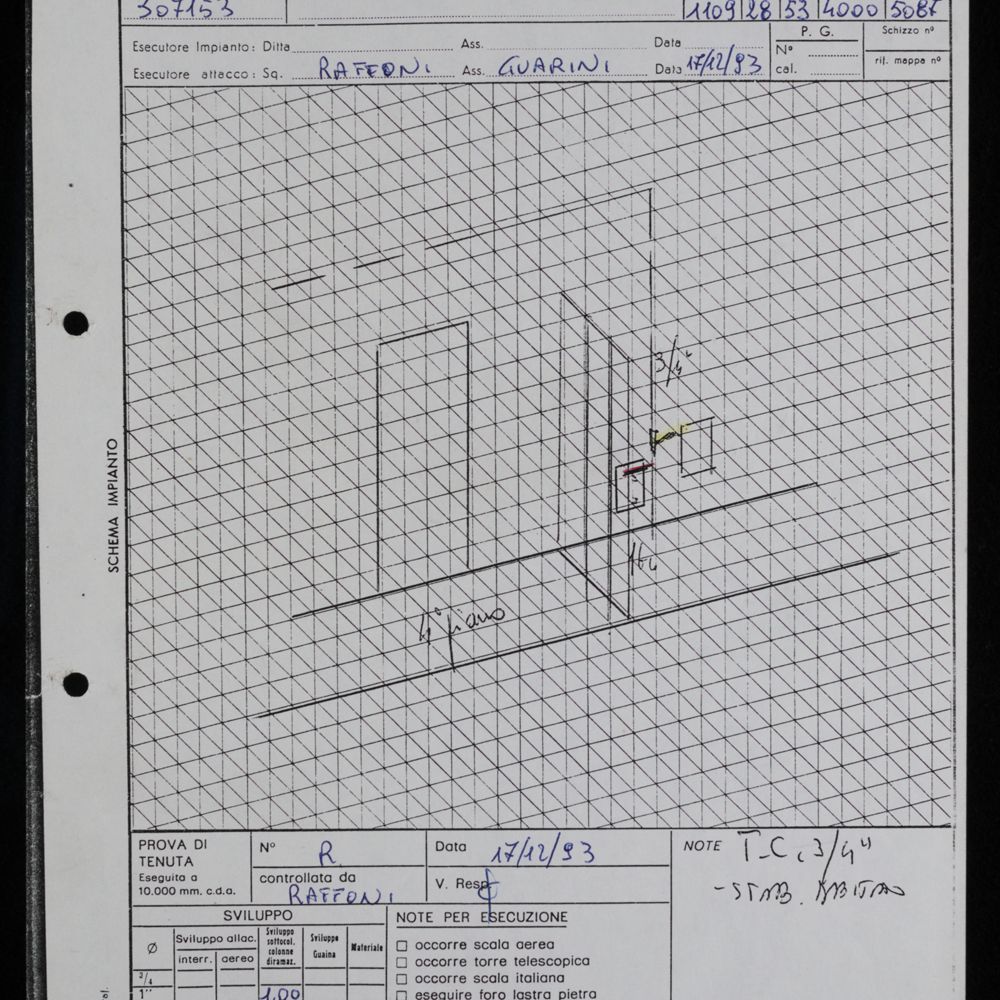 307153 1109 28 53 4000 5087
Esecutore Impianto: Ditta Ass. Data
P. G.
Nº
cal.
Schizzo nº
rif. mappa nº
Esecutore attacco: Sq. RAFFONI Ass. GUARINI Data 17/12/93
SCHEMA IMPIANTO
3/4"
4° piano
PROVA DI TENUTA
Eseguita a
10.000 mm. c.d.a.
Nº R
controllata da
RAFFONI
Data 17/12/93
V. Resp.
NOTE T-C. 3/4"
- STAB.
SVILUPPO
Ø
Sviluppo allac.
interr. aereo
Sviluppo sottocol. colonne diramaz.
Sviluppo Guaina
Materiale
3/4
1" 1,00
NOTE PER ESECUZIONE
occorre scala aerea
occorre torre telescopica
occorre scala italiana
eseguire foro lastra pietra